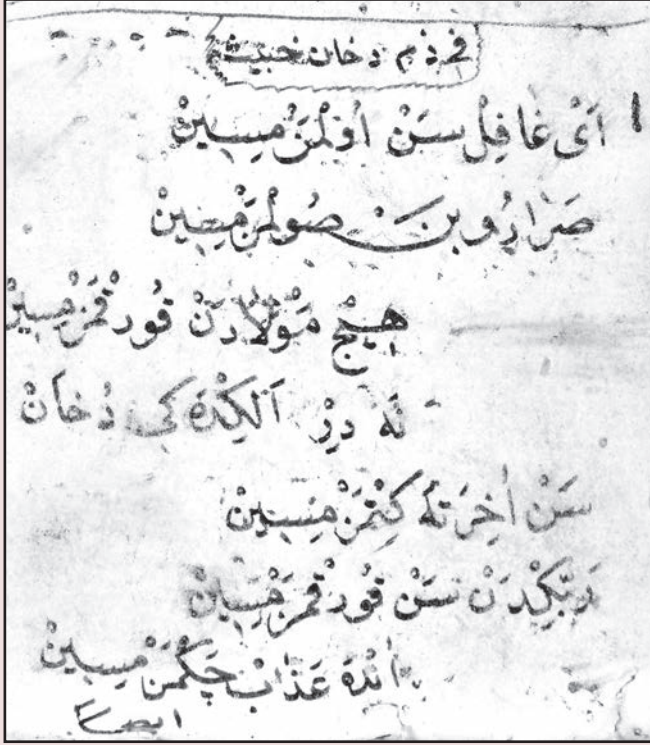 فى ذم دخان خبيث
١ اَىْ غَافِلْ سَنْ اُولْمَزْمِسِينْ
صَرَارُوبنْ صُولْمَزْمِسِينْ
هِيچْ مَوْلَادَنْ قُورْقْمَزْمِسِينْ
نَه دِرْ اَلِكْدَه كِى دُخَانْ
سَنْ اٰخِرَتَه كِتْمَزْمِسِينْ
رَبِّكْدَنْ سَنْ قُورْقْمَزْمِسِينْ
اَنْدَه عَذَابْ چَكْمَزْمِسِينْ
ايضا